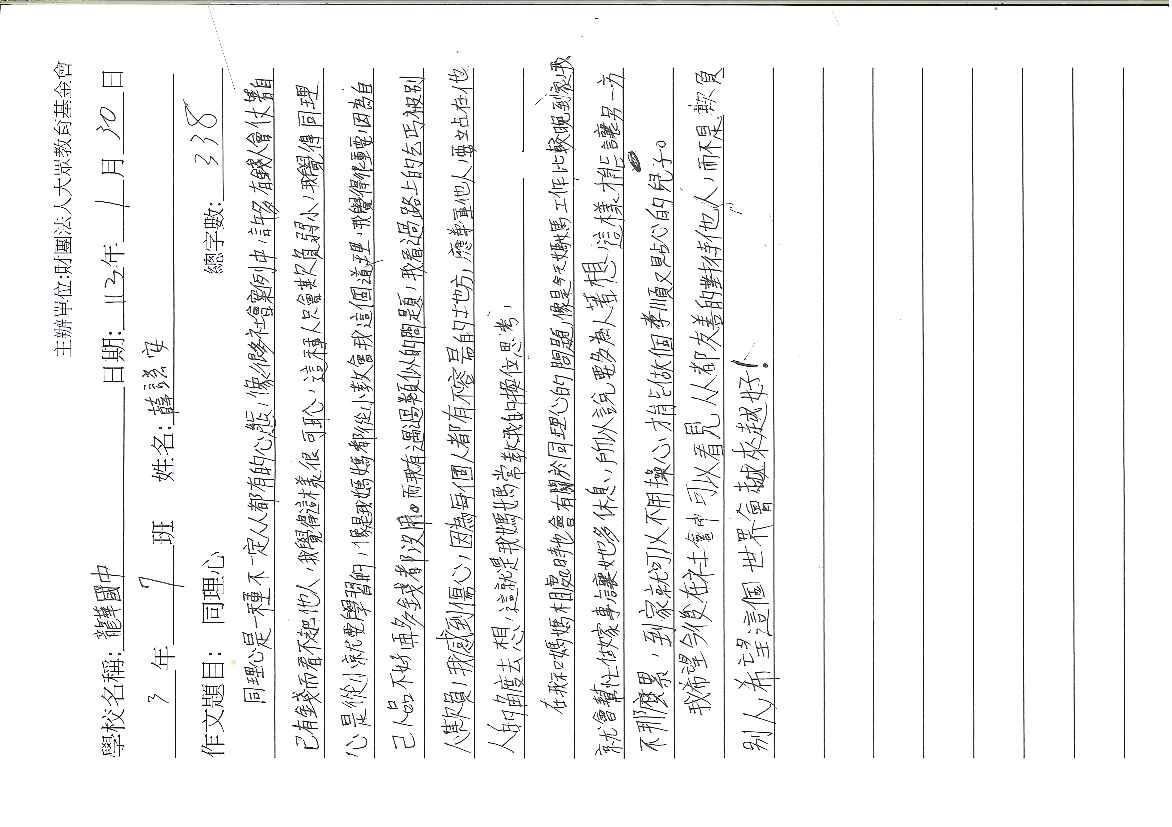 主辦單位:財團法人大眾教育基金會
學校名稱: 龍華國中 日期: 113年 1 月 30 日
3 年 7 班 姓名: 薛謙安
作文題目: 同理心 總字數: 338
同理心是一種不一定人人都有的心態,像很多社會案例中,許多有錢人會仗著自
己有錢而看不起他人,我覺得這樣很可恥,這種人只會欺負弱小,我覺得同理
心是從小就要學習的,像是我媽媽都從小教會我這個道理,我覺得很重要,因為自
己人品不好再多錢都沒用。而我有遇過類似的問題,我看過路上的乞丐被別
人欺負,我感到傷心,因為每個人都有不容易的地方,應尊重他人要站在他
人的角度去思想,這就是我媽媽常教我的換位思考,
在我和媽媽相處時也會有關於同理心的問題,像是今天媽媽工作比較晚到家我
就會幫忙做家事讓她多休息,所以說要多為人著想,這樣才能讓另一方
不那麼累,到家就可以不用操心才能做個孝順又貼心的兒子。
我希望今後在社會中可以看見人人都友善的對待他人,而不是欺負
別人,希望這個世界會越來越好!